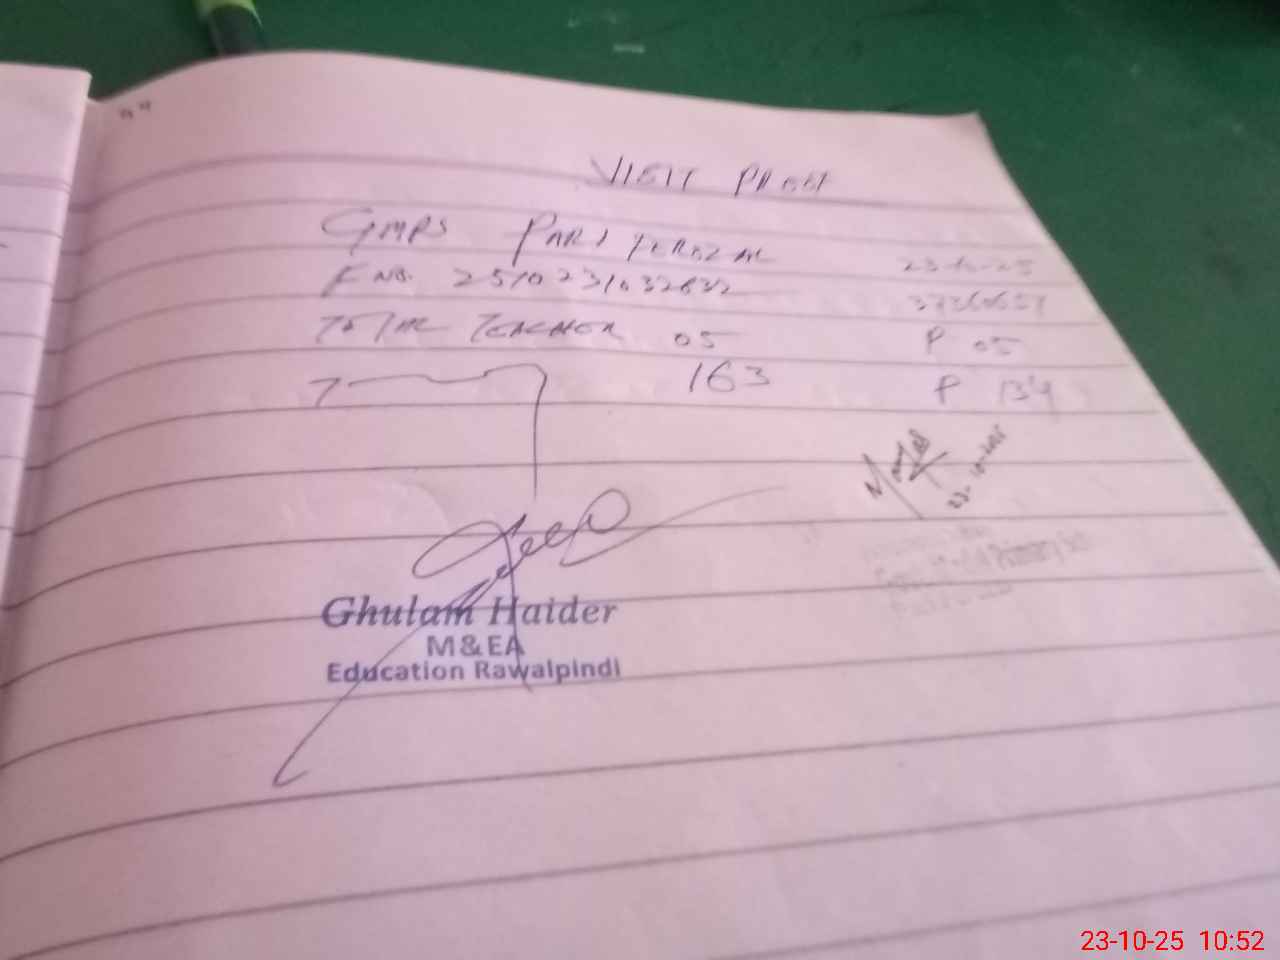 VISIT PROOF
GMPS PARI FEROZAL 23-10-25
F NO. 2510231032832
TOTAL TEACHER 05 P 05
163 P 134
23-10-2025
Ghulam Haider
M&EA
Education Rawalpindi
23-10-25 10:52